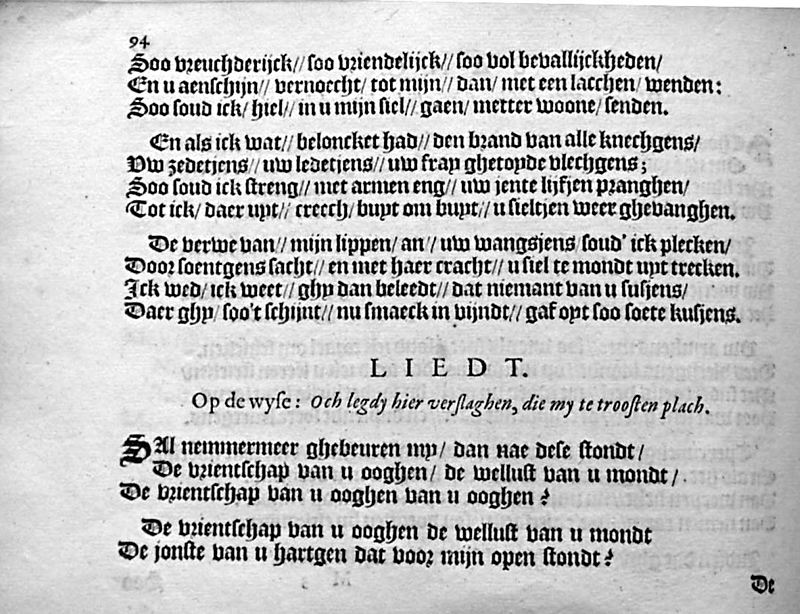 94
Soo vreuchderijck// soo vriendelijck// soo vol bevallijckheden/
En u aenschijn// vernoecht/ tot mijn// dan/ met een lacchen/ wenden:
Soo soud ick/ hiel// in u mijn siel// gaen/ metter woone/ senden.
En als ick wat// beloncket had// den brand van alle knechgens/
Uw zedetjens// uw ledetjens// uw fray ghetoyde vlechgens;
Soo soud ick streng// met armen eng// uw jente lijfjen pranghen/
Tot ick/ daer uyt// creech/ buyt om buyt// u sieltjen weer ghevanghen.
De verwe van// mijn lippen/ an// uw wangsjens soud' ick plecken/
Door soentgens sacht// en met haer cracht// u siel te mondt uyt trecken.
Ick wed/ ick weet// ghy dan beleedt// dat niemant van u susjens/
Daer ghy/ soo't schijnt// nu smaeck in vijndt// gaf oyt soo soete kusjens.
LIEDT.
Op de wyse: Och legdy hier verslaghen, die my te troosten plach.
SAl nemmermeer ghebeuren my/ dan nae dese stondt/
De vrientschap van u ooghen/ de wellust van u mondt/
De vrientschap van u ooghen van u ooghen?
De vrientschap van u ooghen de wellust van u mondt
De jonste van u hartgen dat voor mijn open stondt?
De